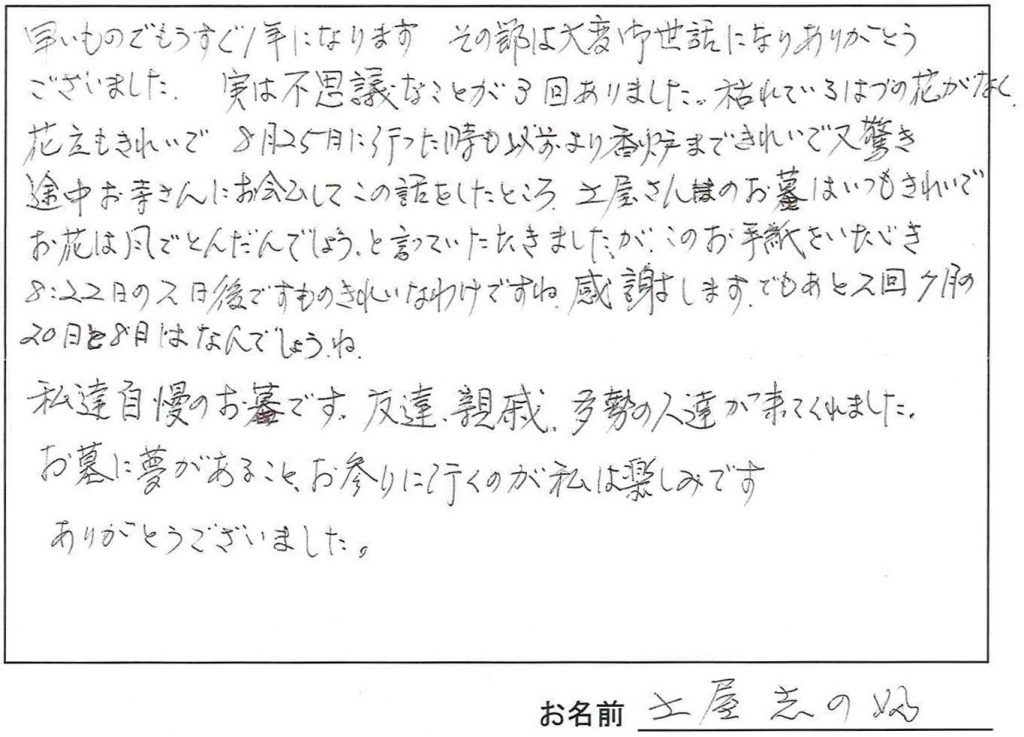 早いものでもうすぐ1年になります その節は大変御世話になりありがとう
ございました. 実は不思議なことが3回ありました。枯れているはづの花がなく
花立もきれいで 8月25日に行った時も以前より香炉まできれいで又驚き
途中お寺さんにお会いしてこの話をしたところ 土屋さんのお墓はいつもきれいで
お花は風でとんだんでしょう.と言っていただきましたが.このお手紙をいただき
8:22日の2日後ですものきれいなわけですね.感謝します.でもあと2回7月の
20日と8月はなんでしょうね.
私達自慢のお墓です.友達.親戚.多勢の人達が来てくれました.
お墓に夢があること、お参りに行くのが私は楽しみです
ありがとうございました。
お名前 土屋 志の